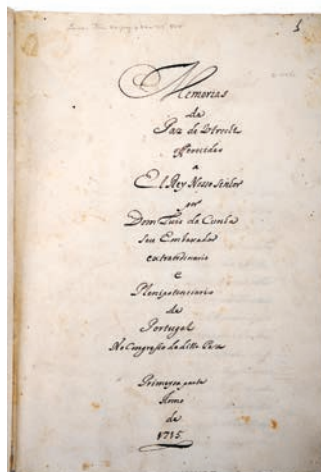 Memorias
da
Paz de Utrecht
offerecidas
a
El Rey Nosso Senhor
por
Dom Luis da Cunha
seu Embaxador
extraordinario
e
Plenipotenciario
de
Portugal
No Congresso da ditta Paz
Primeyra parte
Anno
de
1715